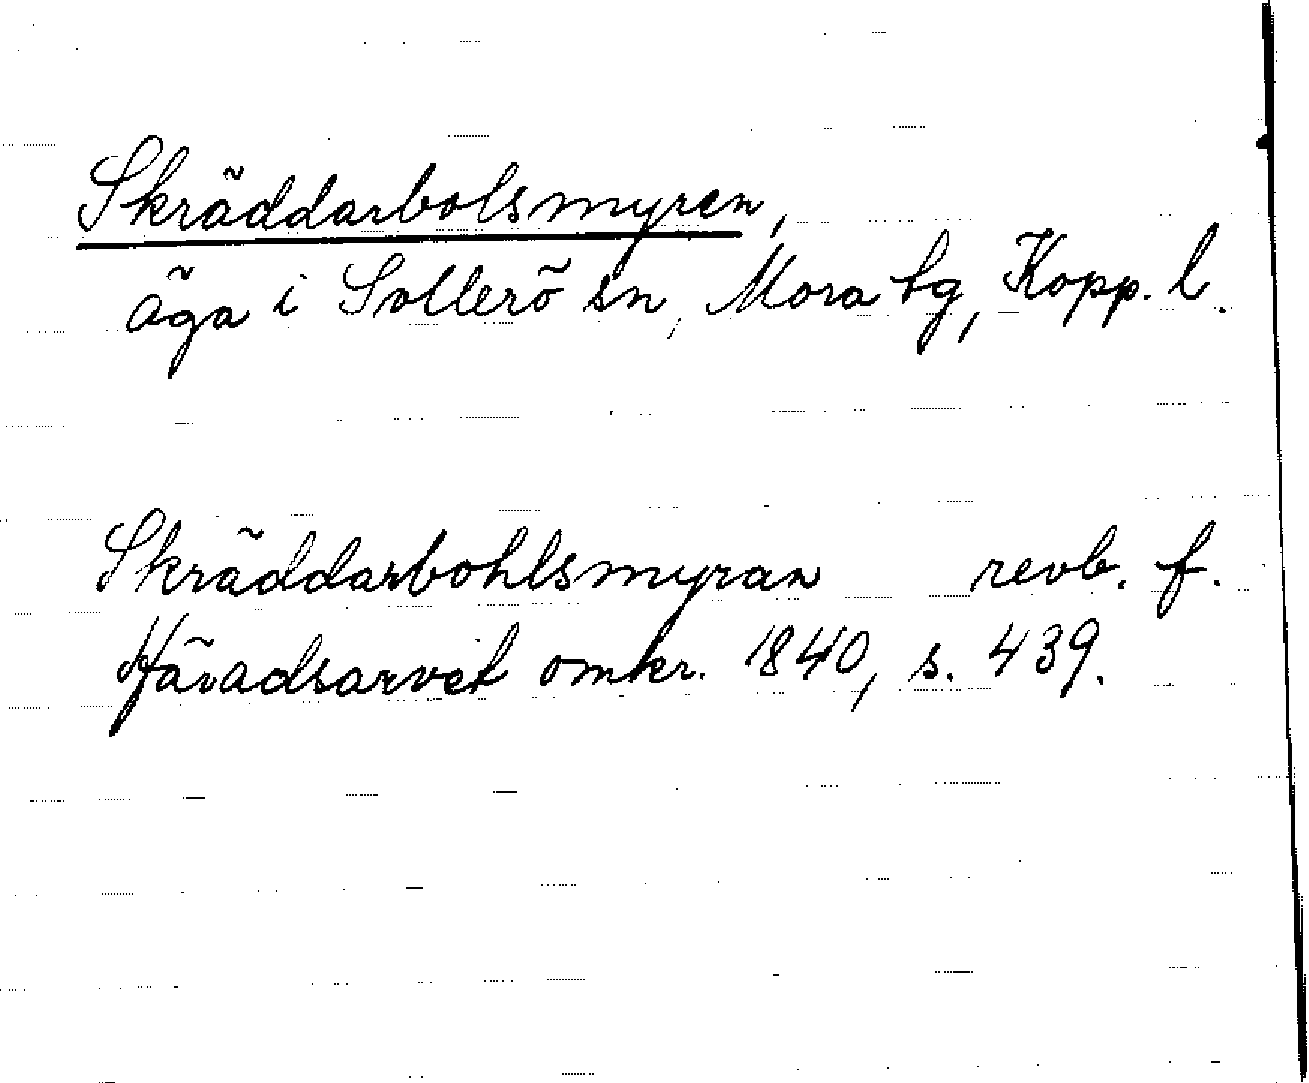 Skräddarbolsmyren,
äga i Sollerö sn, Mora tg, Kopp. l.
Skräddarbohlsmyran revb. f.
Häradsarvet omkr. 1840, s. 439.